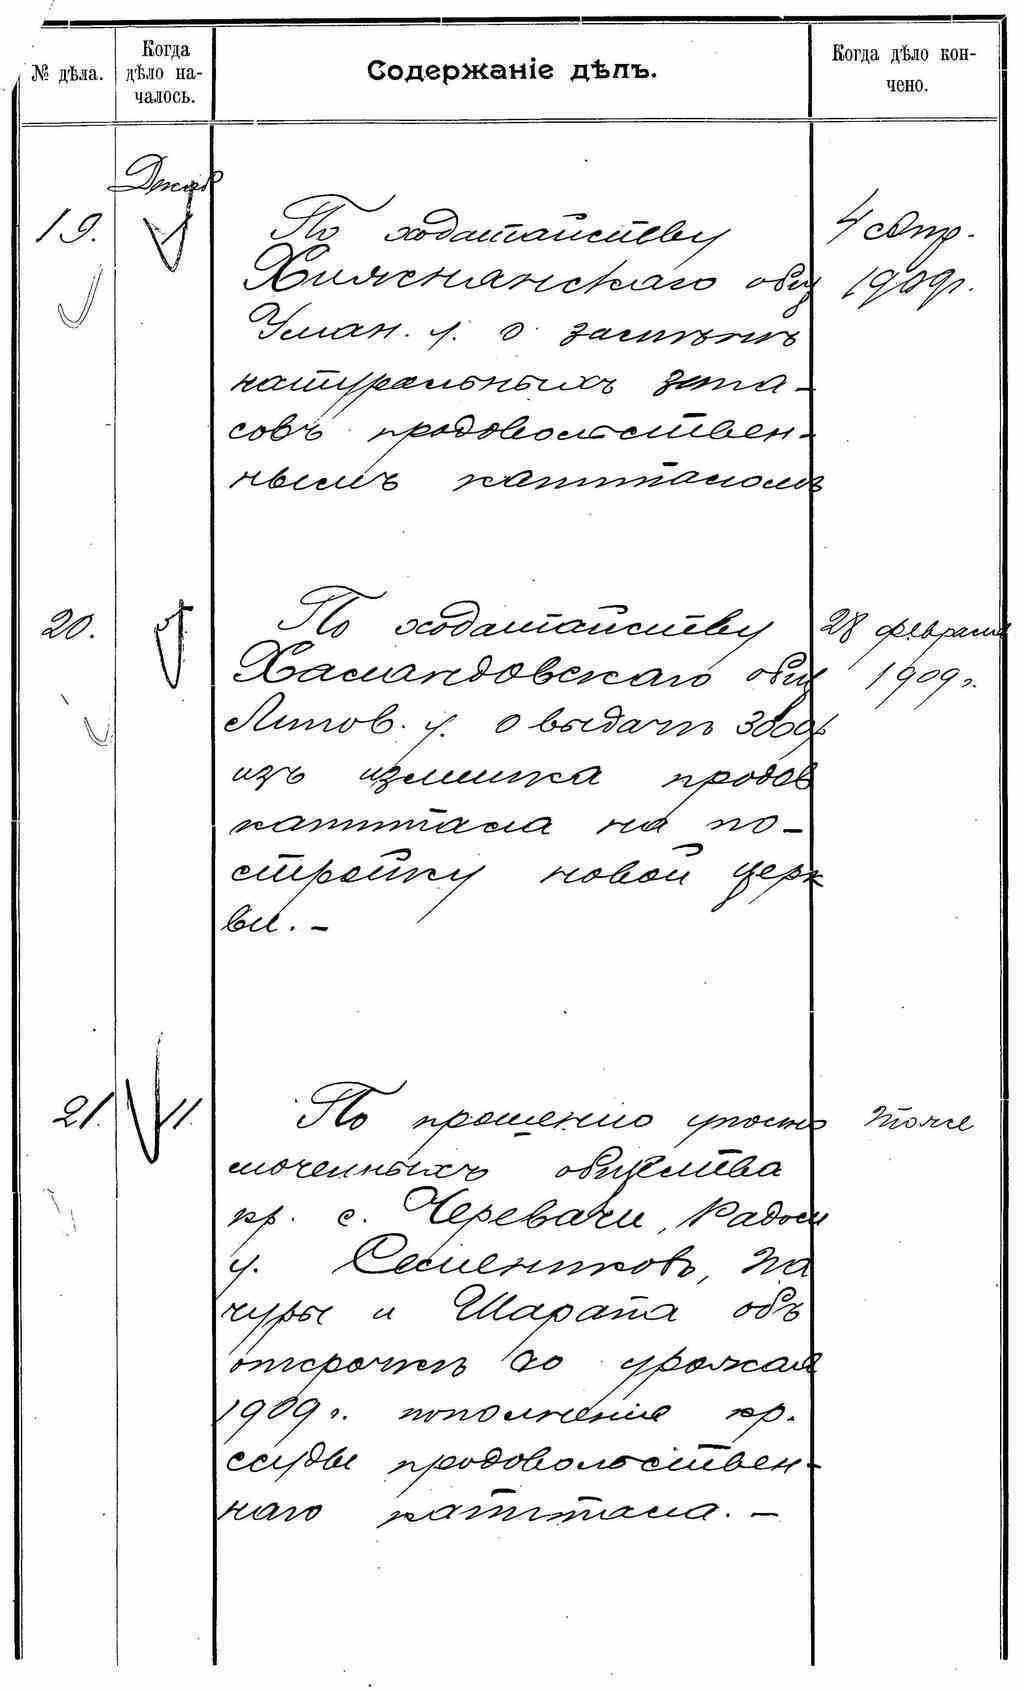 № дѣла.
Когда
дѣло на-
чалось.
Содержаніе дѣлъ.
Когда дѣло кон-
чено.
Декаб
19.
По ходатайству
4 Апр.
Хижснянскаго общ
1909г.
Уман. у. о замѣнѣ
натуральныхъ запа-
совъ продовольствен-
нымъ капиталомъ
20.
По ходатайству
28 февраля
Хамандовскаго общ
1909 г.
Липов. у. о выдачѣ 3000р
изъ излишка продов
капитала на по-
стройку новой церк
ви. –
21.
11.
По прошенію уполно
тоже
моченныхъ общества
кр. с. Черевачи, Радом
у. Семеникова, Па
чуры и Шарапа объ
отсрочкѣ до урожая
1909 г. пополненія кр.
ссуды продовольствен-
наго капитала. –